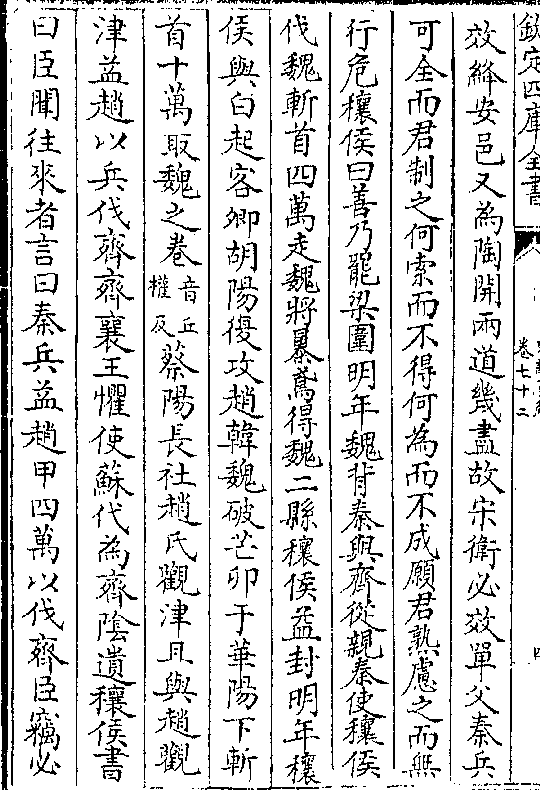 欽定四庫全書
卷七十二
效絳安邑又為陶開兩道幾盡故宋衛必效單父秦兵
可全而君制之何索而不得何為而不成願君熟慮之而無
行危穰侯曰善乃罷梁圍明年魏背秦與齊從親秦使穰侯
伐魏斬首四萬走魏將暴鳶得魏二縣穰侯益封明年穰
侯與白起客卿胡陽復攻趙韓魏破芒卯于華陽下斬
首十萬取魏之卷音丘權反蔡陽長社趙氏觀津且與趙觀
津益趙以兵伐齊齊襄王懼使蘇代為齊陰遺穰侯書
曰臣聞往來者言曰秦兵益趙甲四萬以伐齊臣竊必